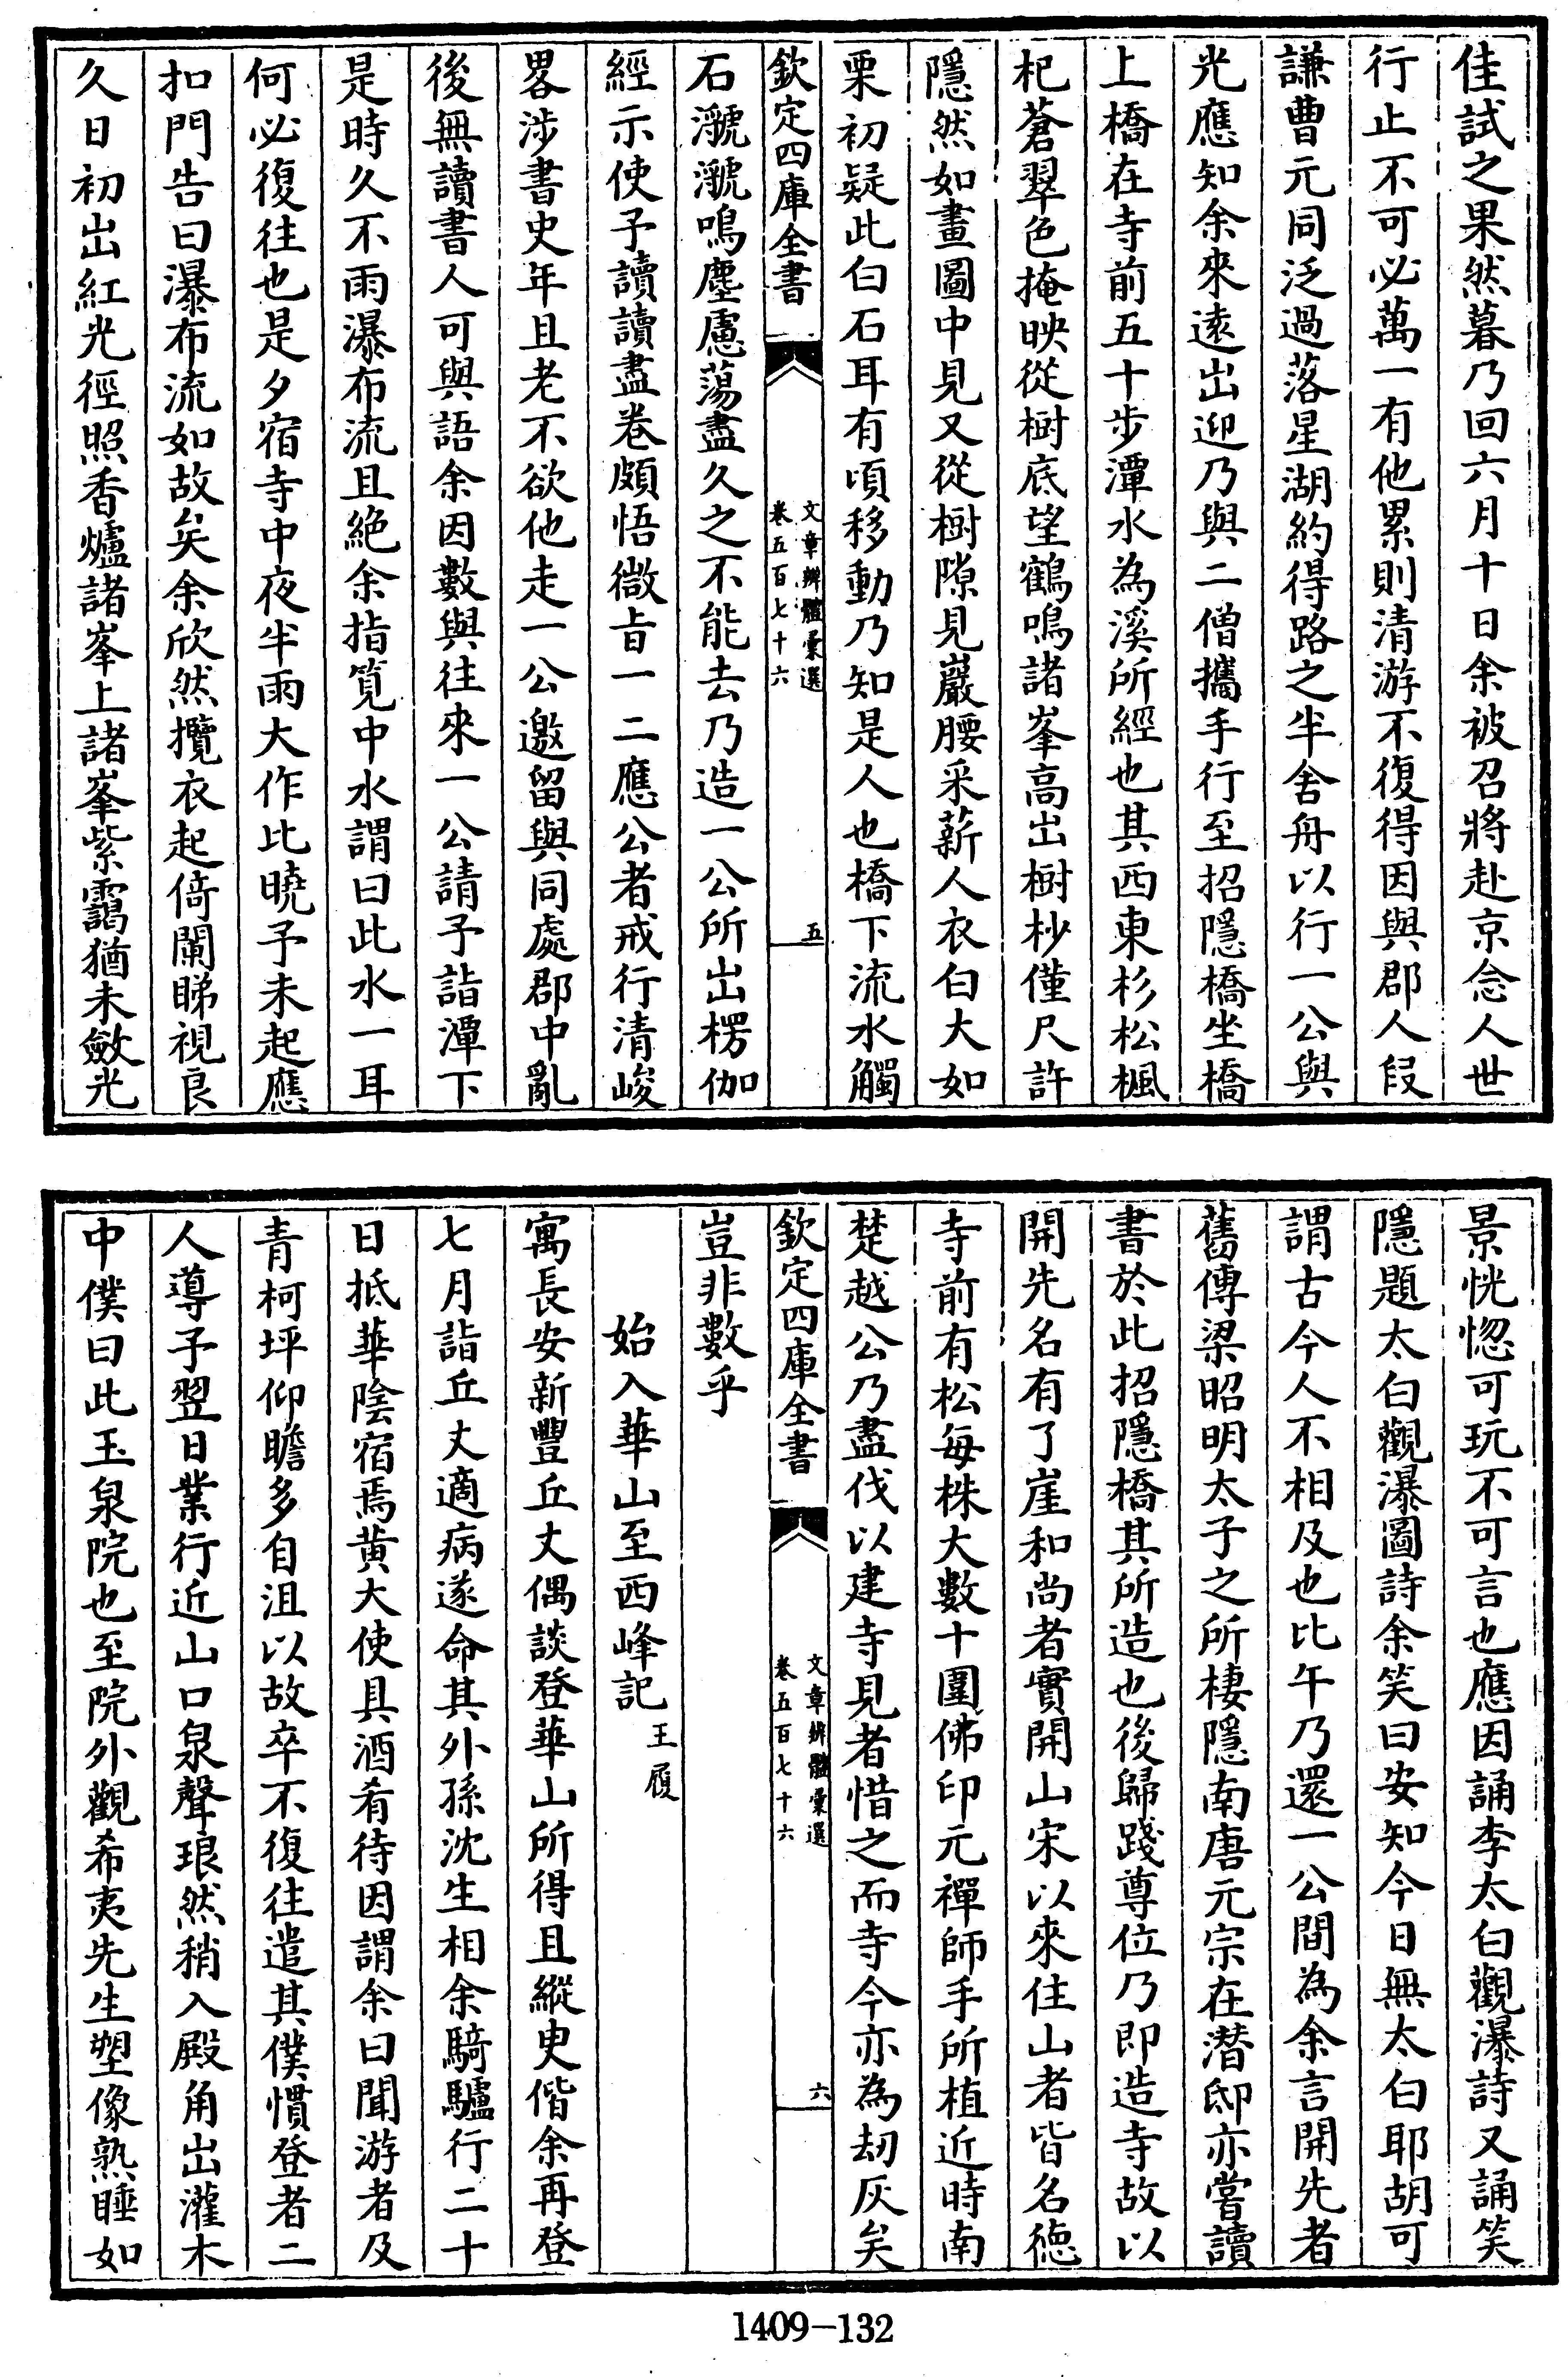 佳試之果然暮乃回六月十日余被召將赴京念人世
行止不可必萬一有他累則清游不復得因與郡人段
謙曹元同泛過落星湖約得路之半舍舟以行一公與
光應知余來遠出迎乃與二僧攜手行至招隱橋坐橋
上橋在寺前五十步潭水為溪所經也其西東杉松楓
杞蒼翠色掩映從樹底望鶴鳴諸峯高出樹杪僅尺許
隱然如畫圖中見又從樹隙見巖腰采薪人衣白大如
栗初疑此白石耳有頃移動乃知是人也橋下流水觸
欽定四庫全書
文章辨體彙選
卷五百七十六
五
石㶁㶁鳴塵慮蕩盡久之不能去乃造一公所出楞伽
經示使予讀讀盡卷頗悟微旨一二應公者戒行清峻
畧涉書史年且老不欲他走一公邀留與同處郡中亂
後無讀書人可與語余因數與往來一公請予詣潭下
是時久不雨瀑布流且絶余指筧中水謂曰此水一耳
何必復往也是夕宿寺中夜半雨大作比曉予未起應
扣門告曰瀑布流如故矣余欣然攬衣起倚闌睇視良
久日初出紅光徑照香爐諸峯上諸峯紫靄猶未斂光
景恍惚可玩不可言也應因誦李太白觀瀑詩又誦笑
隱題太白觀瀑圖詩余笑曰安知今日無太白耶胡可
謂古今人不相及也比午乃還一公間為余言開先者
舊傳梁昭明太子之所棲隱南唐元宗在潛邸亦嘗讀
書於此招隱橋其所造也後歸踐尊位乃即造寺故以
開先名有了崖和尚者實開山宋以來住山者皆名德
寺前有松每株大數十圍佛印元禪師手所植近時南
楚越公乃盡伐以建寺見者惜之而寺今亦為刧灰矣
欽定四庫全書
文章辨體彙選
卷五百七十六
六
豈非數乎
始入華山至西峰記王履
寓長安新豐丘丈偶談登華山所得且縱臾偕余再登
七月詣丘丈適病遂命其外孫沈生相余騎驢行二十
日抵華陰宿焉黄大使具酒肴待因謂余曰聞游者及
青柯坪仰瞻多自沮以故卒不復往遣其僕慣登者二
人導予翌日業行近山口泉聲琅然稍入殿角出灌木
中僕曰此玉泉院也至院外觀希夷先生塑像熟睡如
1409-132